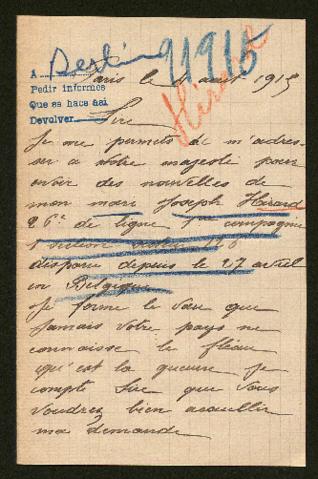 A Berlin 91915
Pedir informes
Que se hace asi
Devolver
Hérard
Paris le 6 août 1915
Sire
Je me permets de m'adres-
ser a votre majesté pour
avoir des nouvelles de
mon mari Joseph Hérard
26e de ligne 1ere compagnie
disparu depuis le 27 avril
en Belgique
Je forme le vœu que
jamais votre pays ne
connaisse le fléau
qu'est la guerre je
compte Sire que vous
voudrez bien accueillir
ma demande